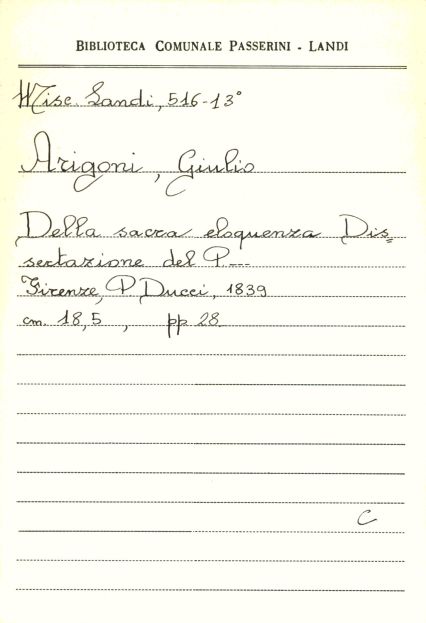 BIBLIOTECA COMUNALE PASSERINI - LANDI
Misc. Landi, 516-13°
Arigoni, Giulio
Della sacra eloquenza Dis=
sertazione del P---
Firenze, P Ducci, 1839
cm. 18,5 , pp 28
C